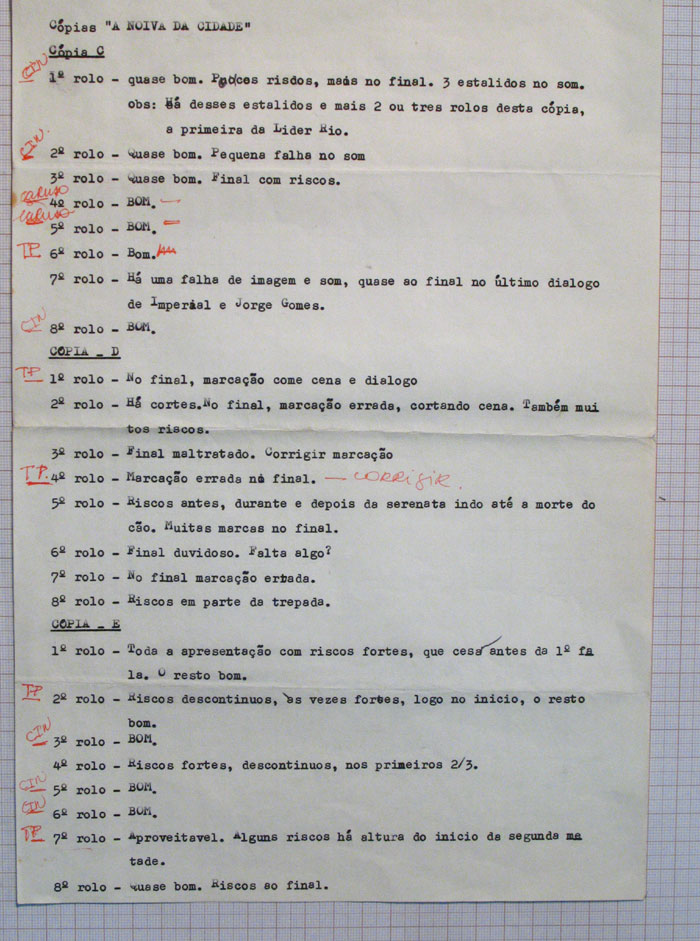 Cópias "A NOIVA DA CIDADE"
Cópia C
CIN 1º rolo - quase bom. Poucos risdos, mais no final. 3 estalidos no som.
obs: Há desses estalidos e mais 2 ou tres rolos desta cópia,
a primeira da Lider Rio.
CIN. 2º rolo - Quase bom. Pequena falha no som
3º rolo - Quase bom. Final com riscos.
caruso 4º rolo - BOM. —
caruso 5º rolo - BOM. —
TP 6º rolo - Bom.
7º rolo - Há uma falha de imagem e som, quase ao final no último dialogo
de Imperial e Jorge Gomes.
CIN 8º rolo - BOM.
COPIA - D
TP 1º rolo - No final, marcação come cena e dialogo
2º rolo - Há cortes.No final, marcação errada, cortando cena. Também mui
tos riscos.
3º rolo - Final maltratado. Corrigir marcação
TP. 4º rolo - Marcação errada no final. — CORRIGIR.
5º rolo - Riscos antes, durante e depois da serenata indo até a morte do
cão. Muitas marcas no final.
6º rolo - Final duvidoso. Falta algo?
7º rolo - No final marcação errada.
8º rolo - Riscos em parte da trepada.
COPIA - E
1º rolo - Toda a apresentação com riscos fortes, que cesa antes da 1º fa
la. O resto bom.
TP 2º rolo - Riscos descontinuos, as vezes fortes, logo no inicio, o resto
bom.
CIN 3º rolo - BOM.
4º rolo - Riscos fortes, descontinuos, nos primeiros 2/3.
CIN 5º rolo - BOM.
CIN 6º rolo - BOM.
TP 7º rolo - Aproveitavel. Alguns riscos há altura do inicio da segunda me
tade.
8º rolo - Quase bom. Riscos ao final.